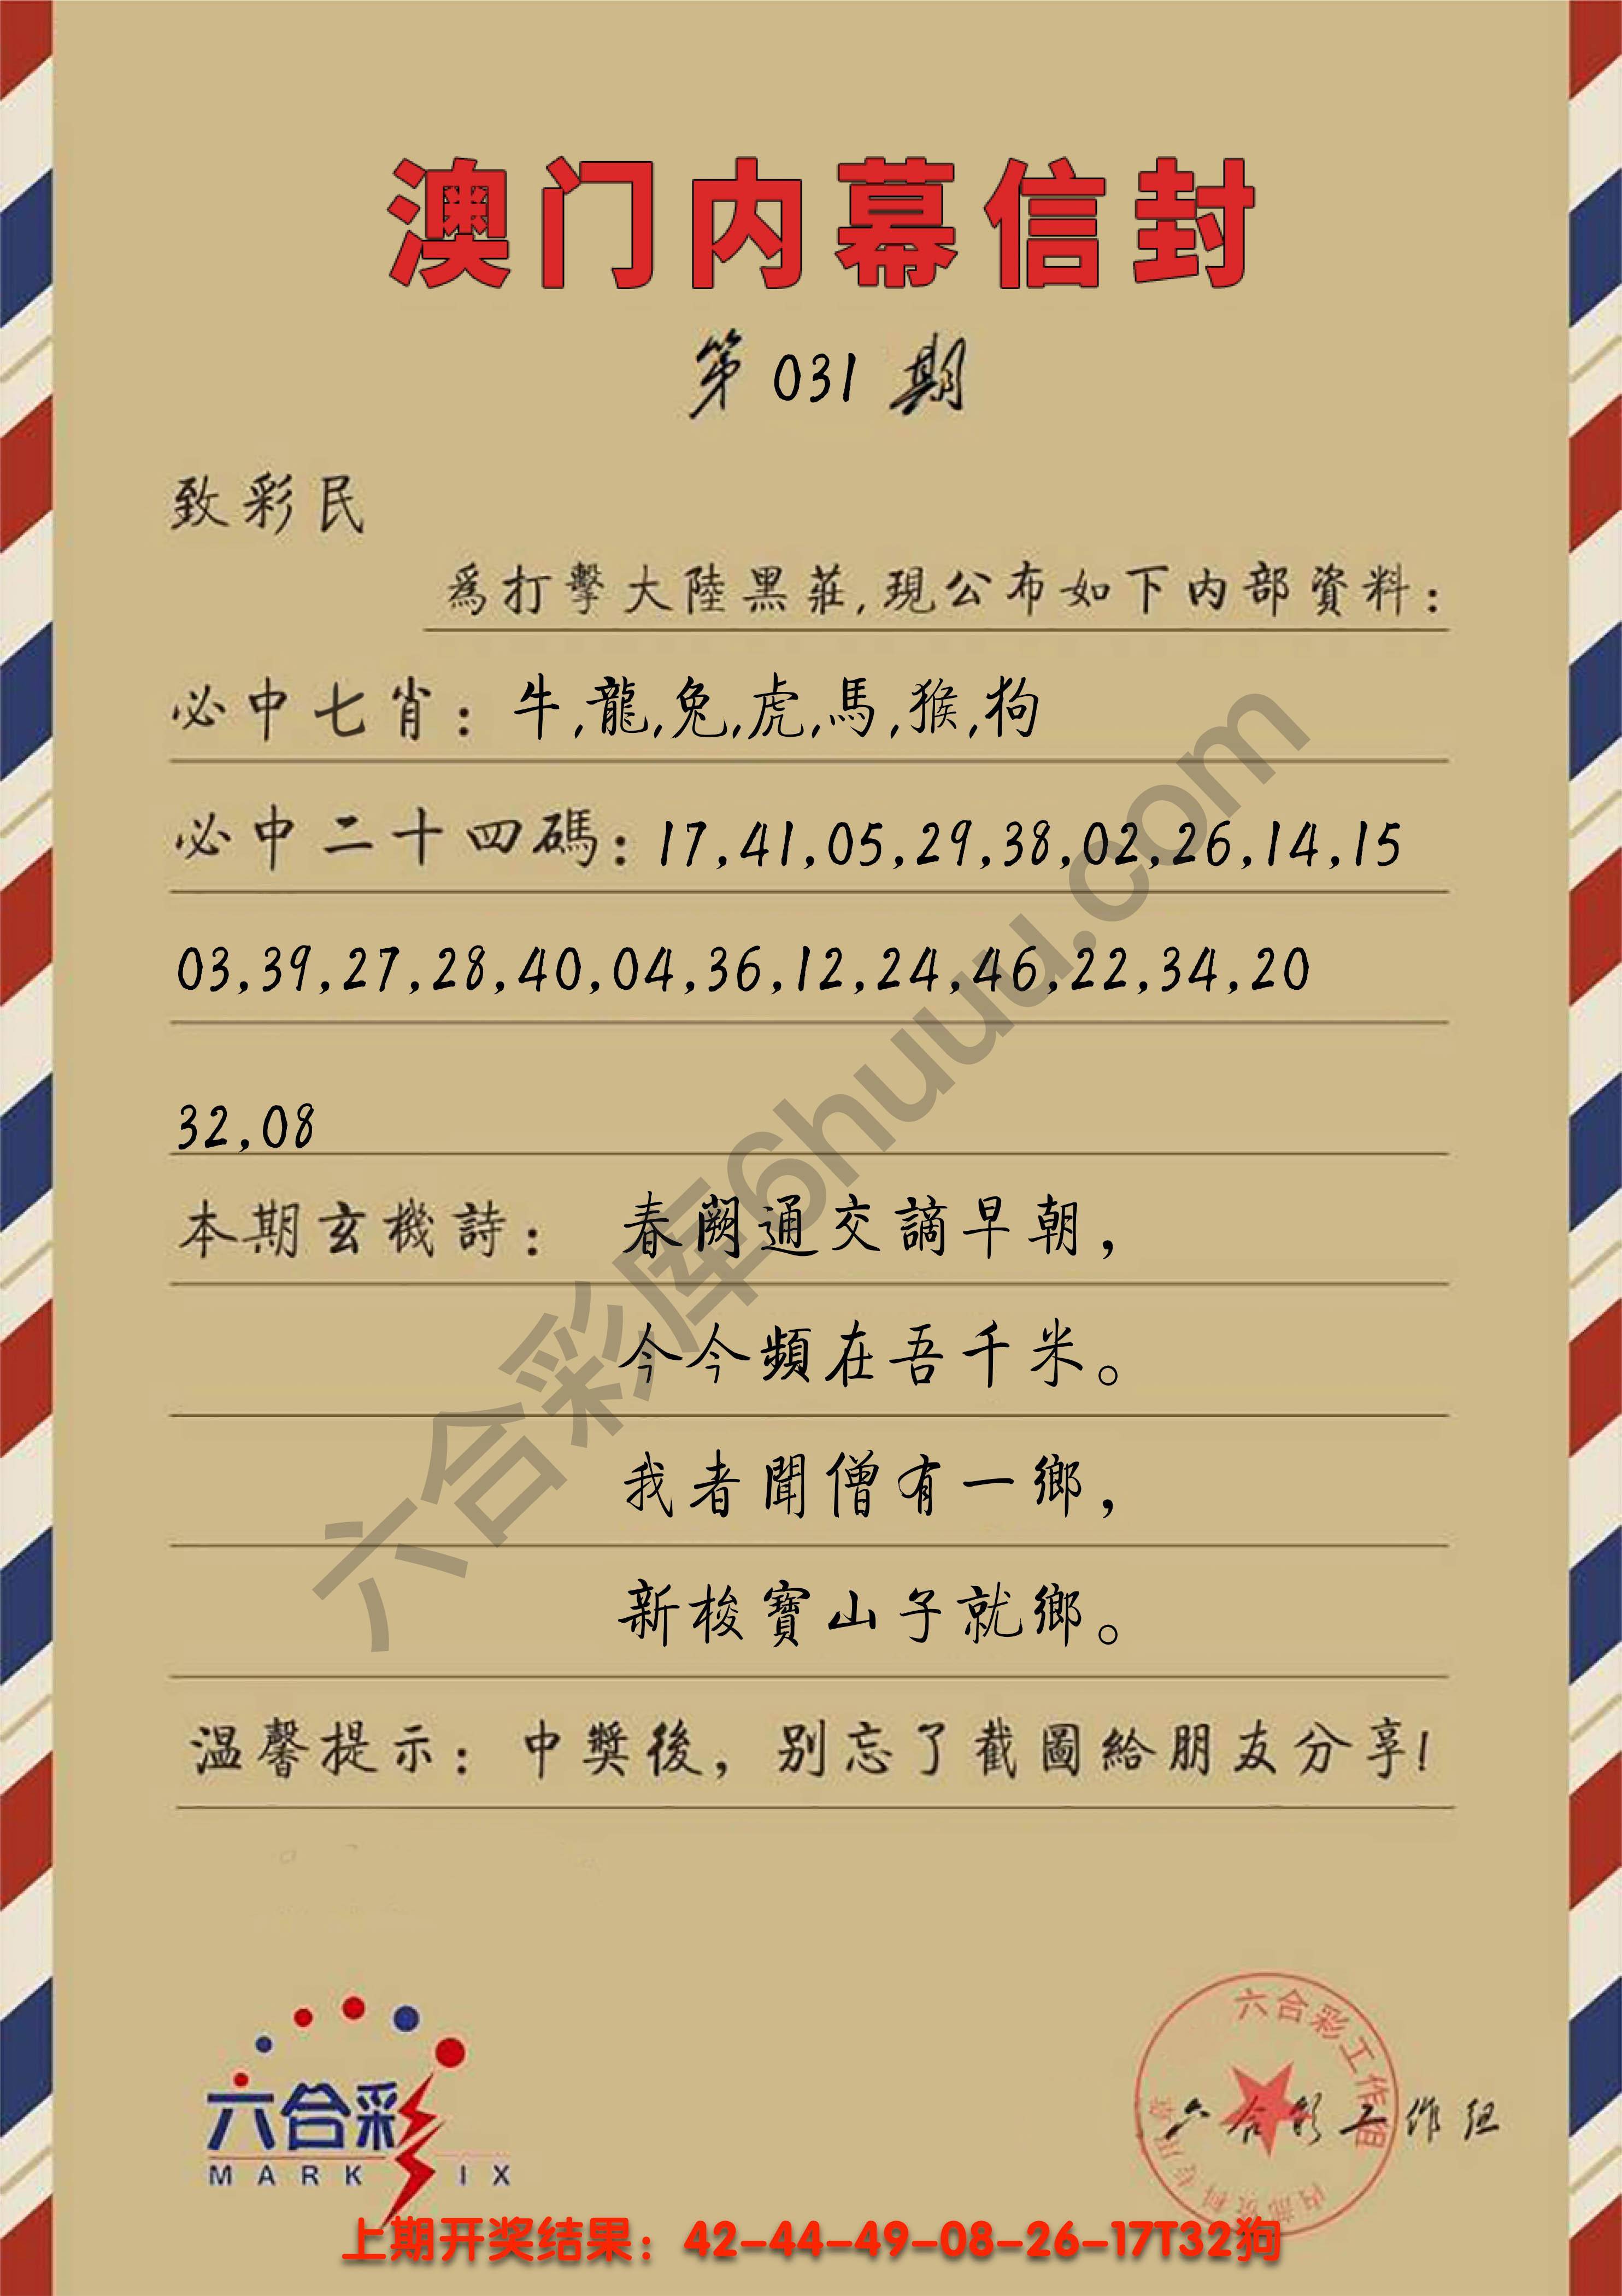 澳门内幕信封
第 031 期
致彩民
爲打擊大陸黑莊,現公布如下内部資料:
必中七肖: 牛,龍,兔,虎,馬,猴,狗
必中二十四碼: 17,41,05,29,38,02,26,14,15
03,39,27,28,40,04,36,12,24,46,22,34,20
32,08
本期玄機詩: 春闕通交謫早朝,
今今頻在吾千米。
我者聞僧有一鄉,
新梭寶山子就鄉。
温馨提示: 中獎後, 别忘了截圖給朋友分享!
六合彩库6huuu.com
六合彩
MARK SIX
六合彩工作组
内部资料专用章
六合彩工作组
上期开奖结果: 42-44-49-08-26-17T32狗